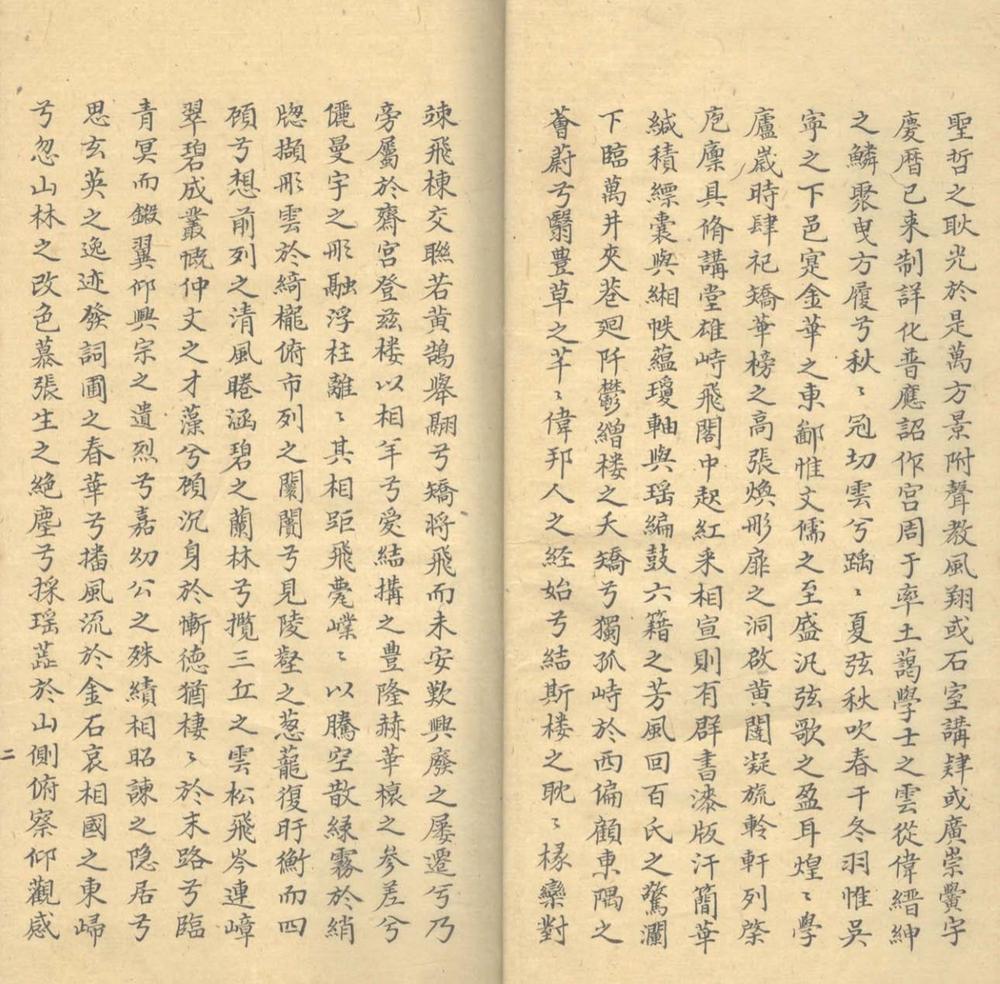 聖哲之耿光於是萬方景附聲教風翔或石室講肄或廣崇黌宇
慶曆已来制詳化普應詔作宫周于率土藹學士之雲從偉縉紳
之鱗聚曳方履兮秋〻冠切雲兮踽〻夏弦秋吹春干冬羽惟吴
寕之下邑寔金華之東鄙惟文儒之至盛汎弦歌之盈耳煌〻學
廬嵗時肆祀矯華榜之高張煥彤扉之洞啟黄閣凝旒軨軒列棨
庖廩具脩講堂雄峙飛閣中起紅釆相宣則有群書漆版汗簡華
緘積縹囊與緗帙藴瓊軸與瑶編鼓六籍之芳風回百氏之驚瀾
下臨萬井夾巷廻阡鬱繒楼之夭矯兮獨孤峙於西偏顧東隅之
薈蔚兮翳豊草之芊〻偉邦人之経始兮結斯楼之耽〻椽欒對
竦飛棟交聮若黄鵠舉翮兮矯将飛而未安歎興廢之屡遷兮乃
旁屬於齋宫登兹楼以相羊兮愛結搆之豊隆赫華榱之参差兮
儷曼宇之彤融浮柱離〻其相距飛甍嶫〻以騰空散緑霧於綃
牎擷彤雲於綺櫳俯市列之闤闠兮見陵壑之葱蘢復盱衡而四
頋兮想前列之清風睠涵碧之蘭林兮攬三丘之雲松飛岑連嶂
翠碧成叢慨仲文之才藻兮頋沉身於慚徳猶棲〻於末路兮臨
青冥而鍛翼仰興宗之遺烈兮嘉幼公之殊績相昭諫之隐居兮
思玄英之逸迹發詞圃之春華兮播風流於金石哀相國之東歸
兮忽山林之改色慕張生之絶塵兮採瑶蕋於山側俯察仰觀感
二